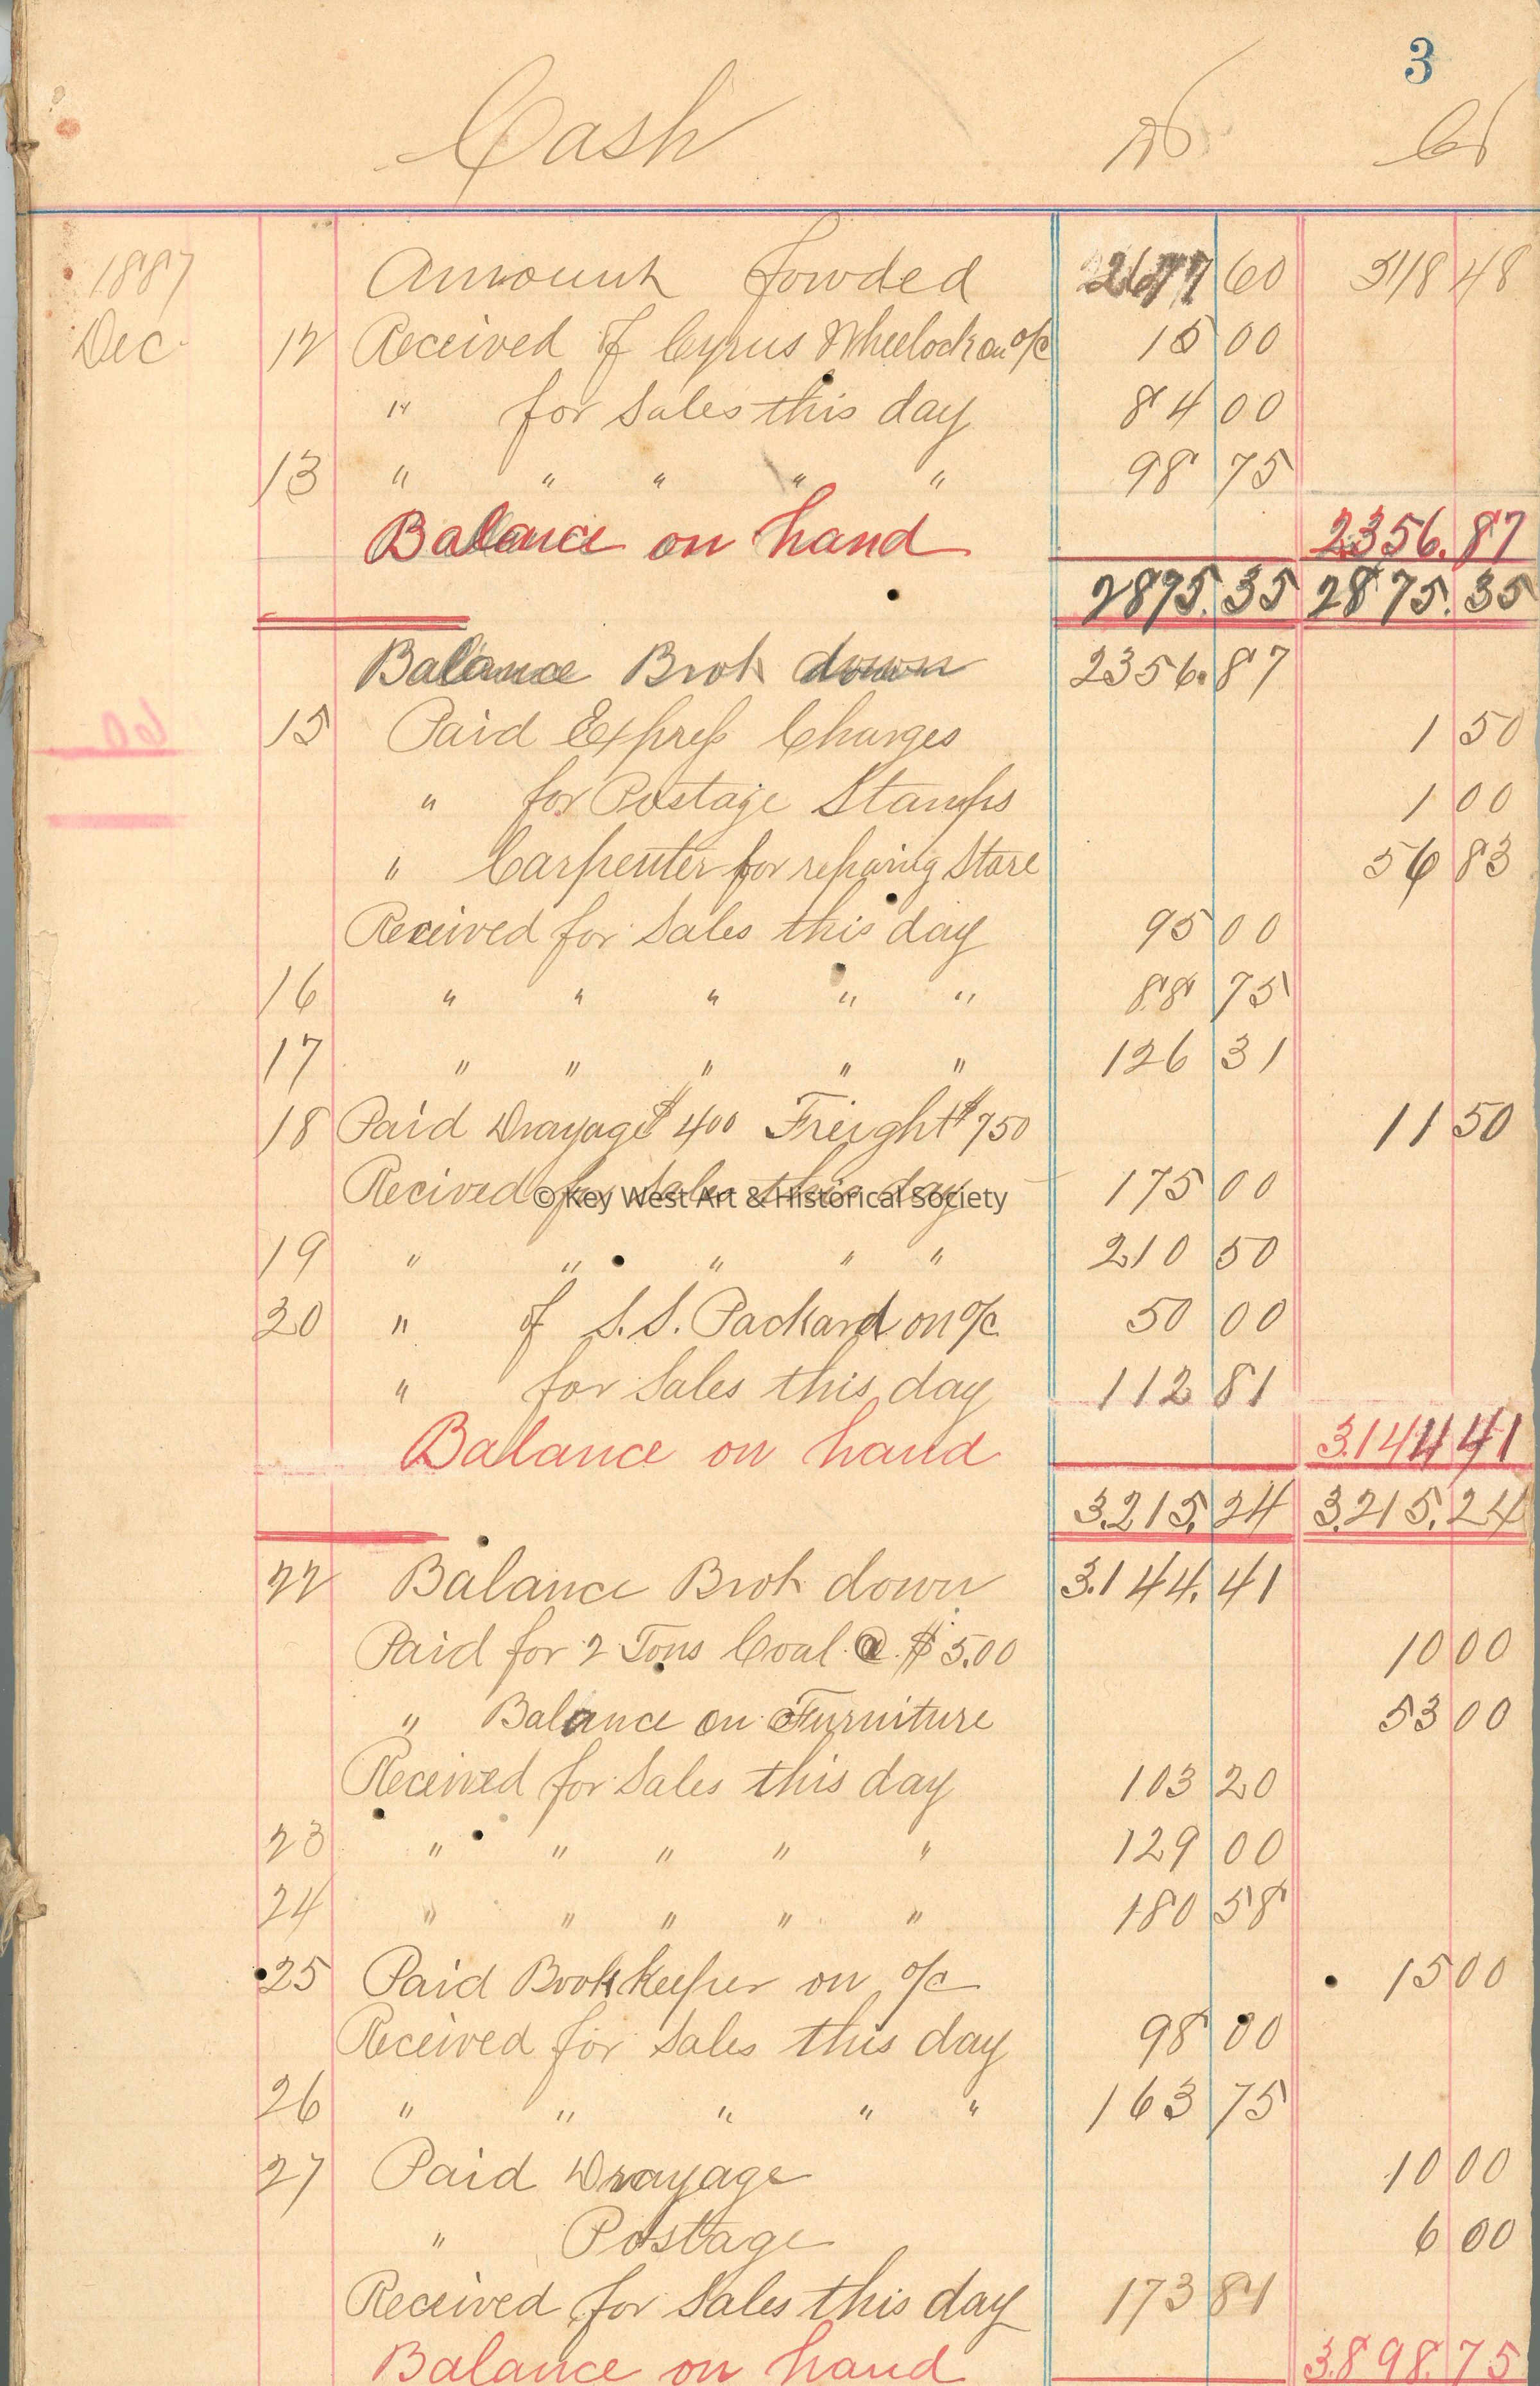 3
Cash Dr Cr
1887 Amount Forwded 2677 60 518 48
Dec 12 Received of Cyrus Wheelock on a/c 15 00
" for Sales this day 84 00
13 " " " " " 98 75
Balance on hand 2356.87
2875.35 2875.35
Balance Brot down 2356.87
15 Paid Express Charges 1 50
" for Postage Stamps 1 00
" Carpenter for reparing Store 56 83
Received for Sales this day 95 00
16 " " " " " 88 75
17 " " " " " 126 31
18 Paid Drayage $400 Freight $750 11 50
Recived for Sales this day 175 00
© Key West Art & Historical Society
19 " " " " " 210 50
20 " of S.S. Packard on a/c 50 00
" for Sales this day 112 81
Balance on hand 3.144 41
3.215.24 3.215.24
22 Balance Brot down 3.144.41
Paid for 2 Tons Coal @ $5.00 10 00
" Balance on Furniture 53 00
Received for Sales this day 103 20
23 " " " " " 129 00
24 " " " " " 180 58
25 Paid Bookkeeper on a/c 15 00
Received for Sales this day 98 00
26 " " " " " 163 75
27 Paid Drayage 10 00
" Postage 6 00
Received for Sales this day 173 81
Balance on hand 3.898.75